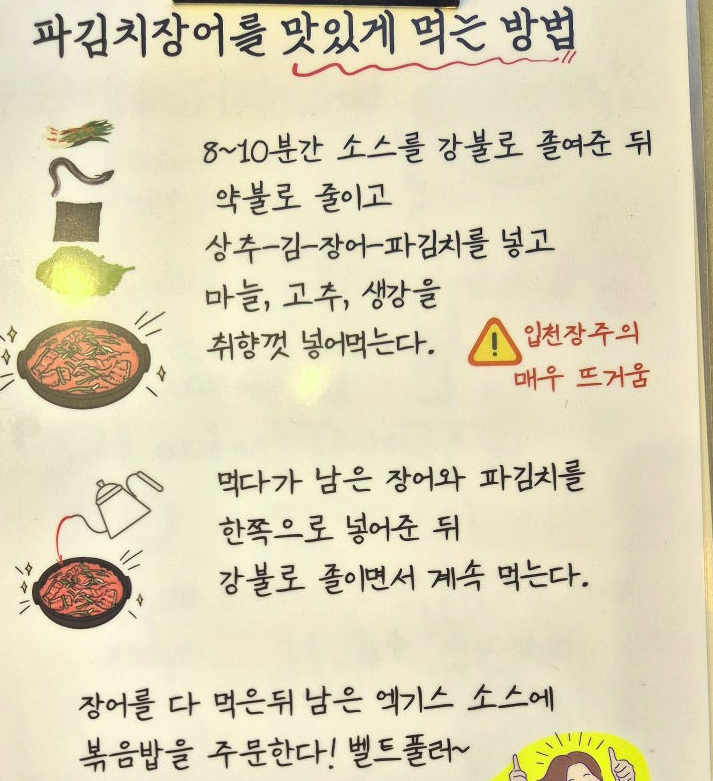 파김치장어를 맛있게 먹는 방법
8~10분간 소스를 강불로 졸여준 뒤
약불로 줄이고
상추-김-장어-파김치를 넣고
마늘, 고추, 생강을
취향껏 넣어먹는다.
입천장주의
매우 뜨거움
먹다가 남은 장어와 파김치를
한쪽으로 넣어준 뒤
강불로 졸이면서 계속 먹는다.
장어를 다 먹은뒤 남은 엑기스 소스에
볶음밥을 주문한다! 벨트풀러~